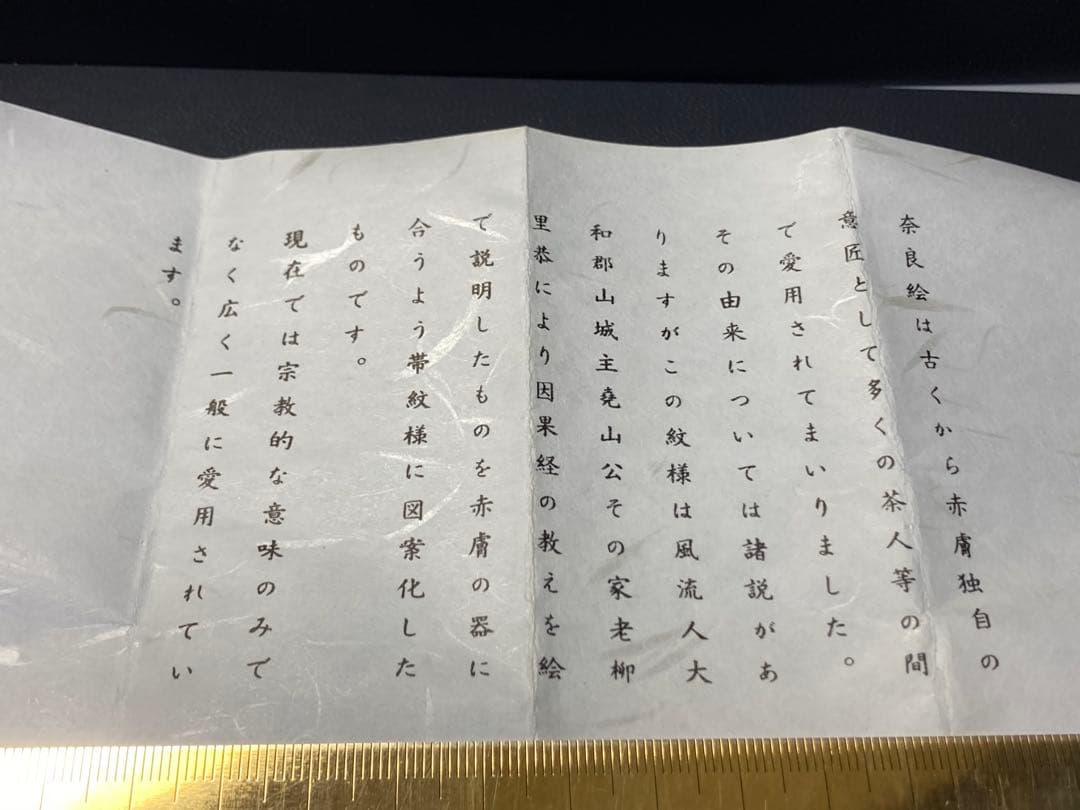 奈良絵は古くから赤膚独自の
意匠として多くの茶人等の間
で愛用されてまいりました。
その由来については諸説があ
りますがこの紋様は風流人大
和郡山城主堯山公その家老柳
里恭により因果経の教えを絵
で説明したものを赤膚の器に
合うよう帯紋様に図案化した
ものです。
現在では宗教的な意味のみで
なく広く一般に愛用されてい
ます。